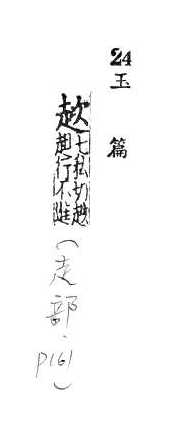 24
玉篇
趑
七私切趑
趄行不進
(走部.P161)